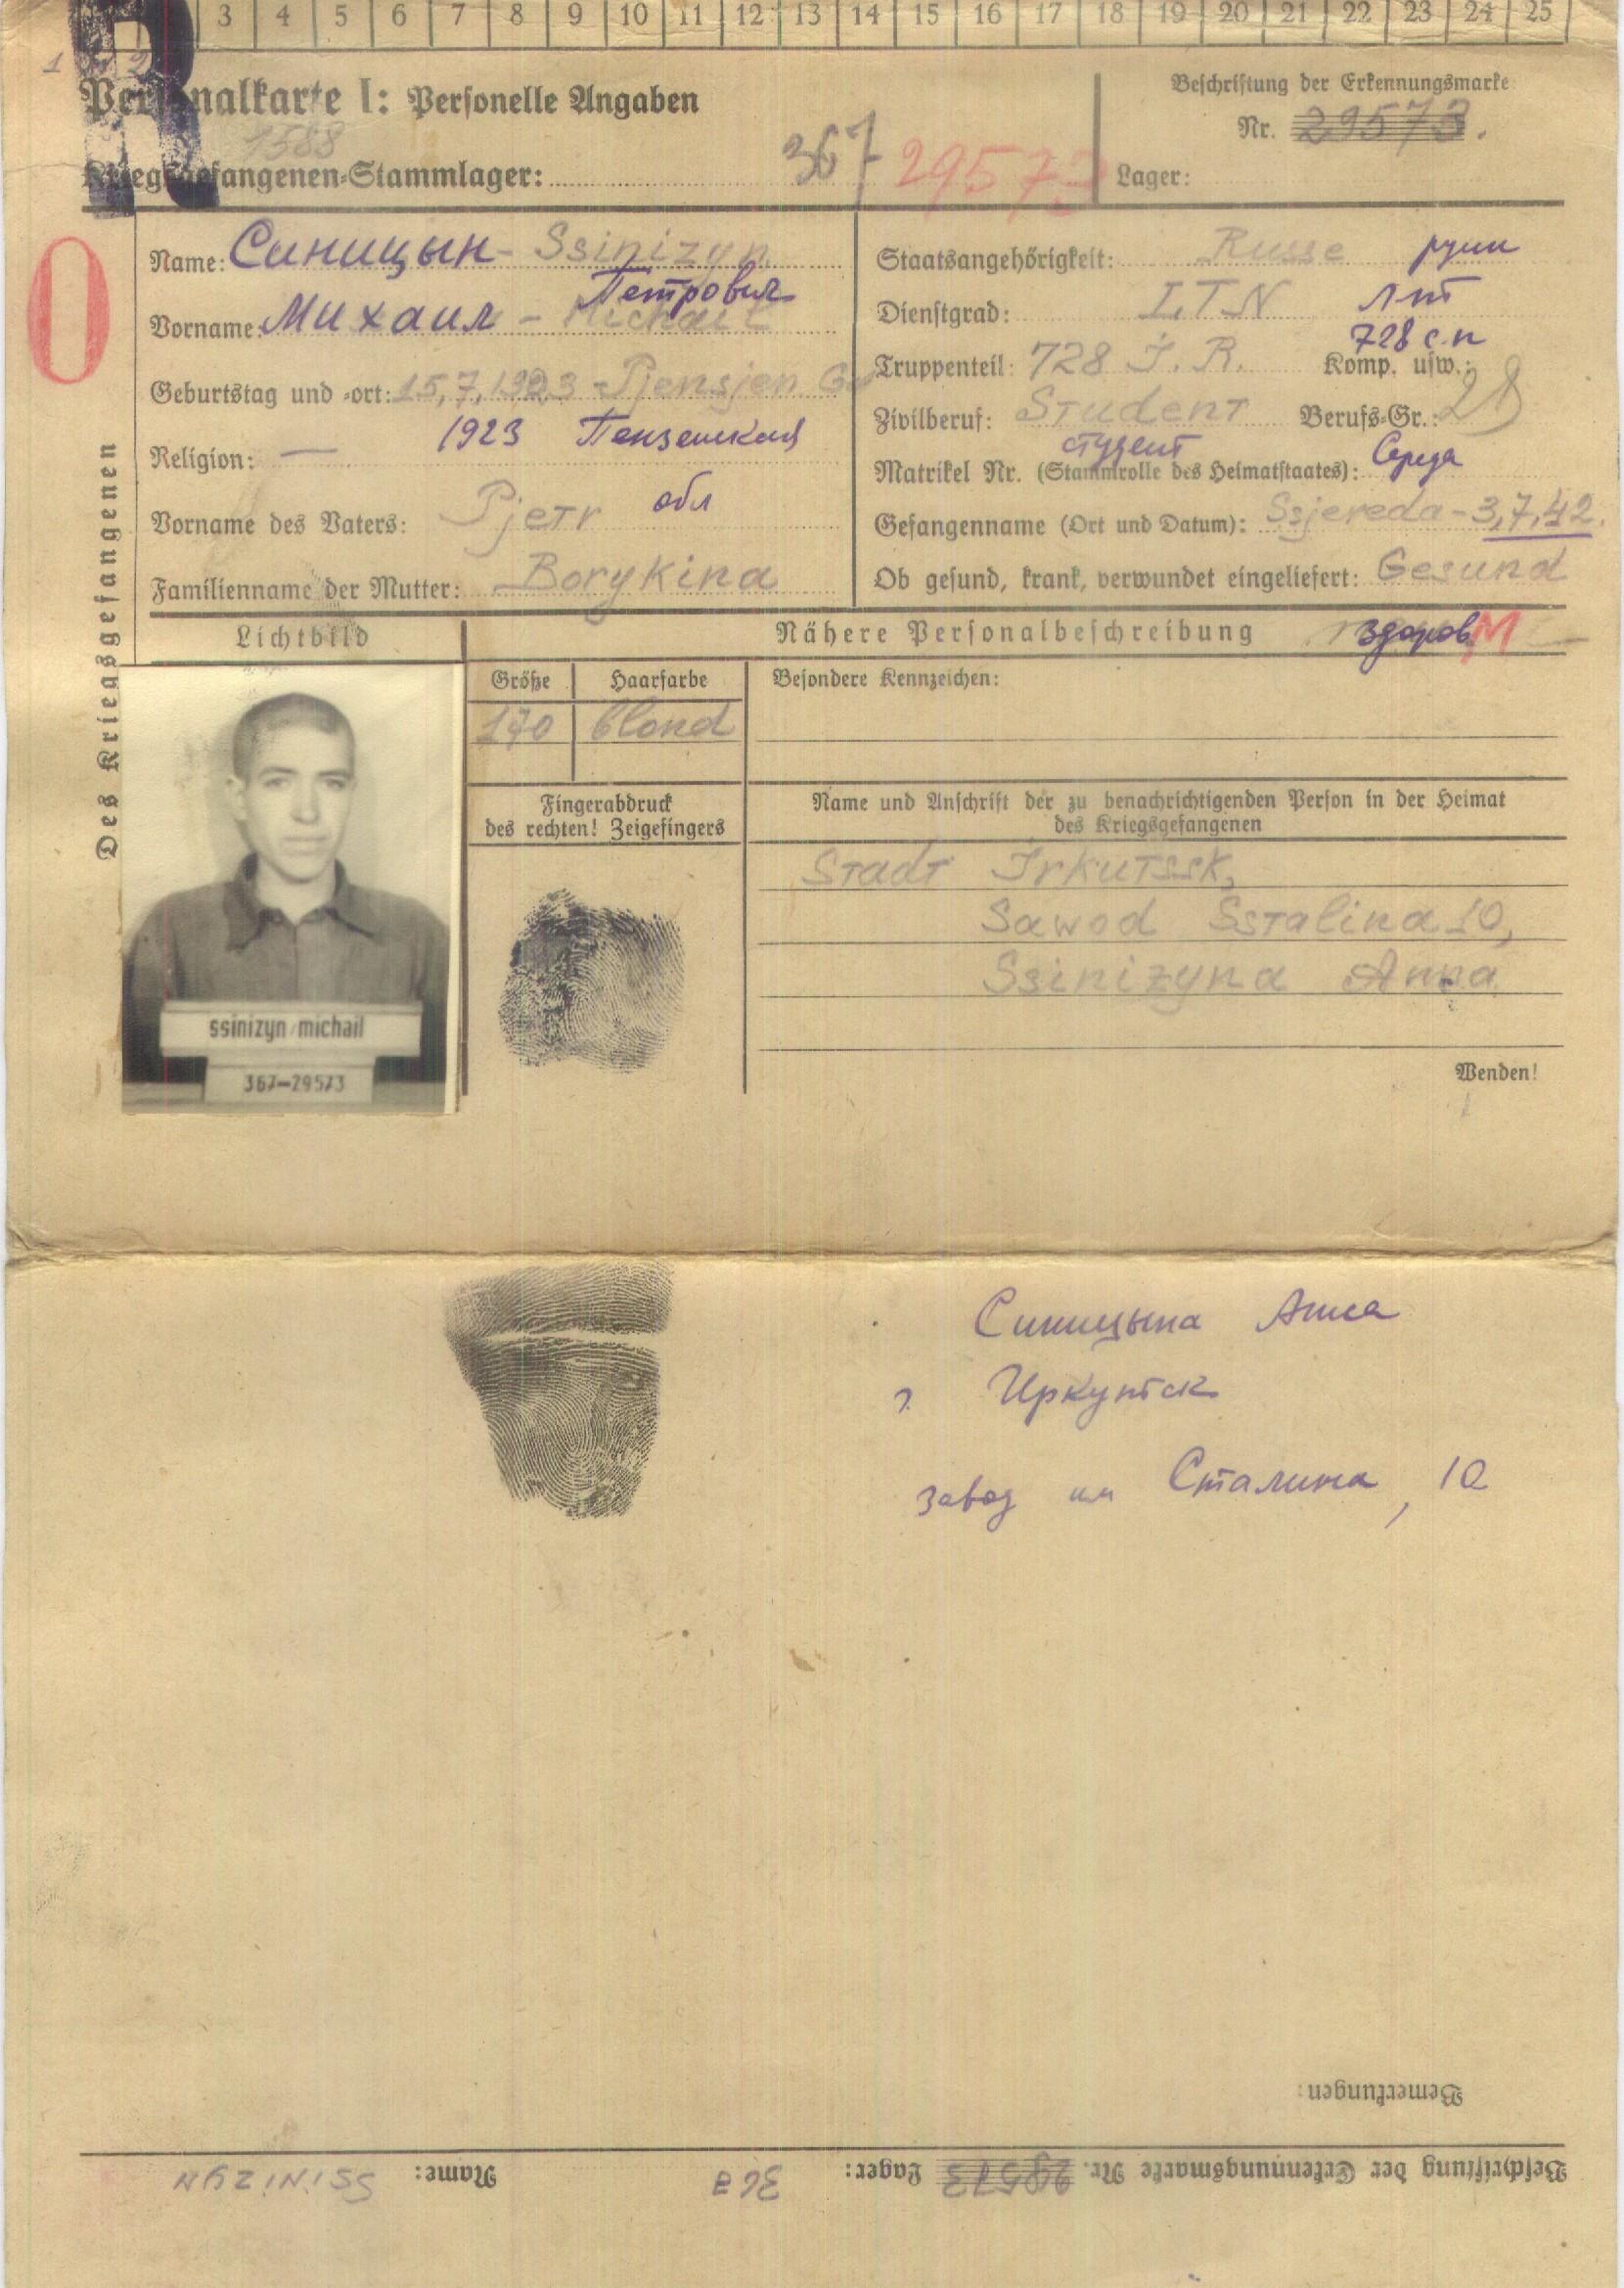 3 4 5 6 7 8 9 10 11 12 13 14 15 16 17 18 19 20 21 22 23 24 25
1 2
R
Personalkarte I: Personelle Angaben
Beschriftung der Erkennungsmarke
Nr. 29573.
1588
Kriegsgefangenen-Stammlager: 367 29573
Lager:
Des Kriegsgefangenen
0
Name: Синицын - Ssinizyn
Петрович
Vorname: Михаил - Michail
Geburtstag und -ort: 15,7,1923 - Pjensjen
1923 Пензенская
Religion: —
обл
Vorname des Vaters: Pjetr
Familienname der Mutter: Borykina
Staatsangehörigkeit: Russe русск
Dienstgrad: LTN лт
728 с.п
Truppenteil: 728 J. R. Komp. usw.:
Zivilberuf: Student Berufs-Gr.: 28
студент
Matrikel Nr. (Stammrolle des Heimatstaates): Середа
Gefangenname (Ort und Datum): Ssjereda - 3,7,42.
Ob gesund, krank, verwundet eingeliefert: Gesund
Lichtbild
Nähere Personalbeschreibung здоров M
Größe Haarfarbe
170 blond
Besondere Kennzeichen:
Fingerabdruck
des rechten! Zeigefingers
Name und Anschrift der zu benachrichtigenden Person in der Heimat
des Kriegsgefangenen
Stadt Irkutssk,
Sawod Sstalina 10,
Ssinizyna Anna
Wenden!
ssinizyn michail
367-29573
Синицына Анна
г. Иркутск
завод им Сталина, 10
Bemerkungen:
Beschriftung der Erkennungsmarke Nr. 29573 Lager: 367 Name: SSINIZYN